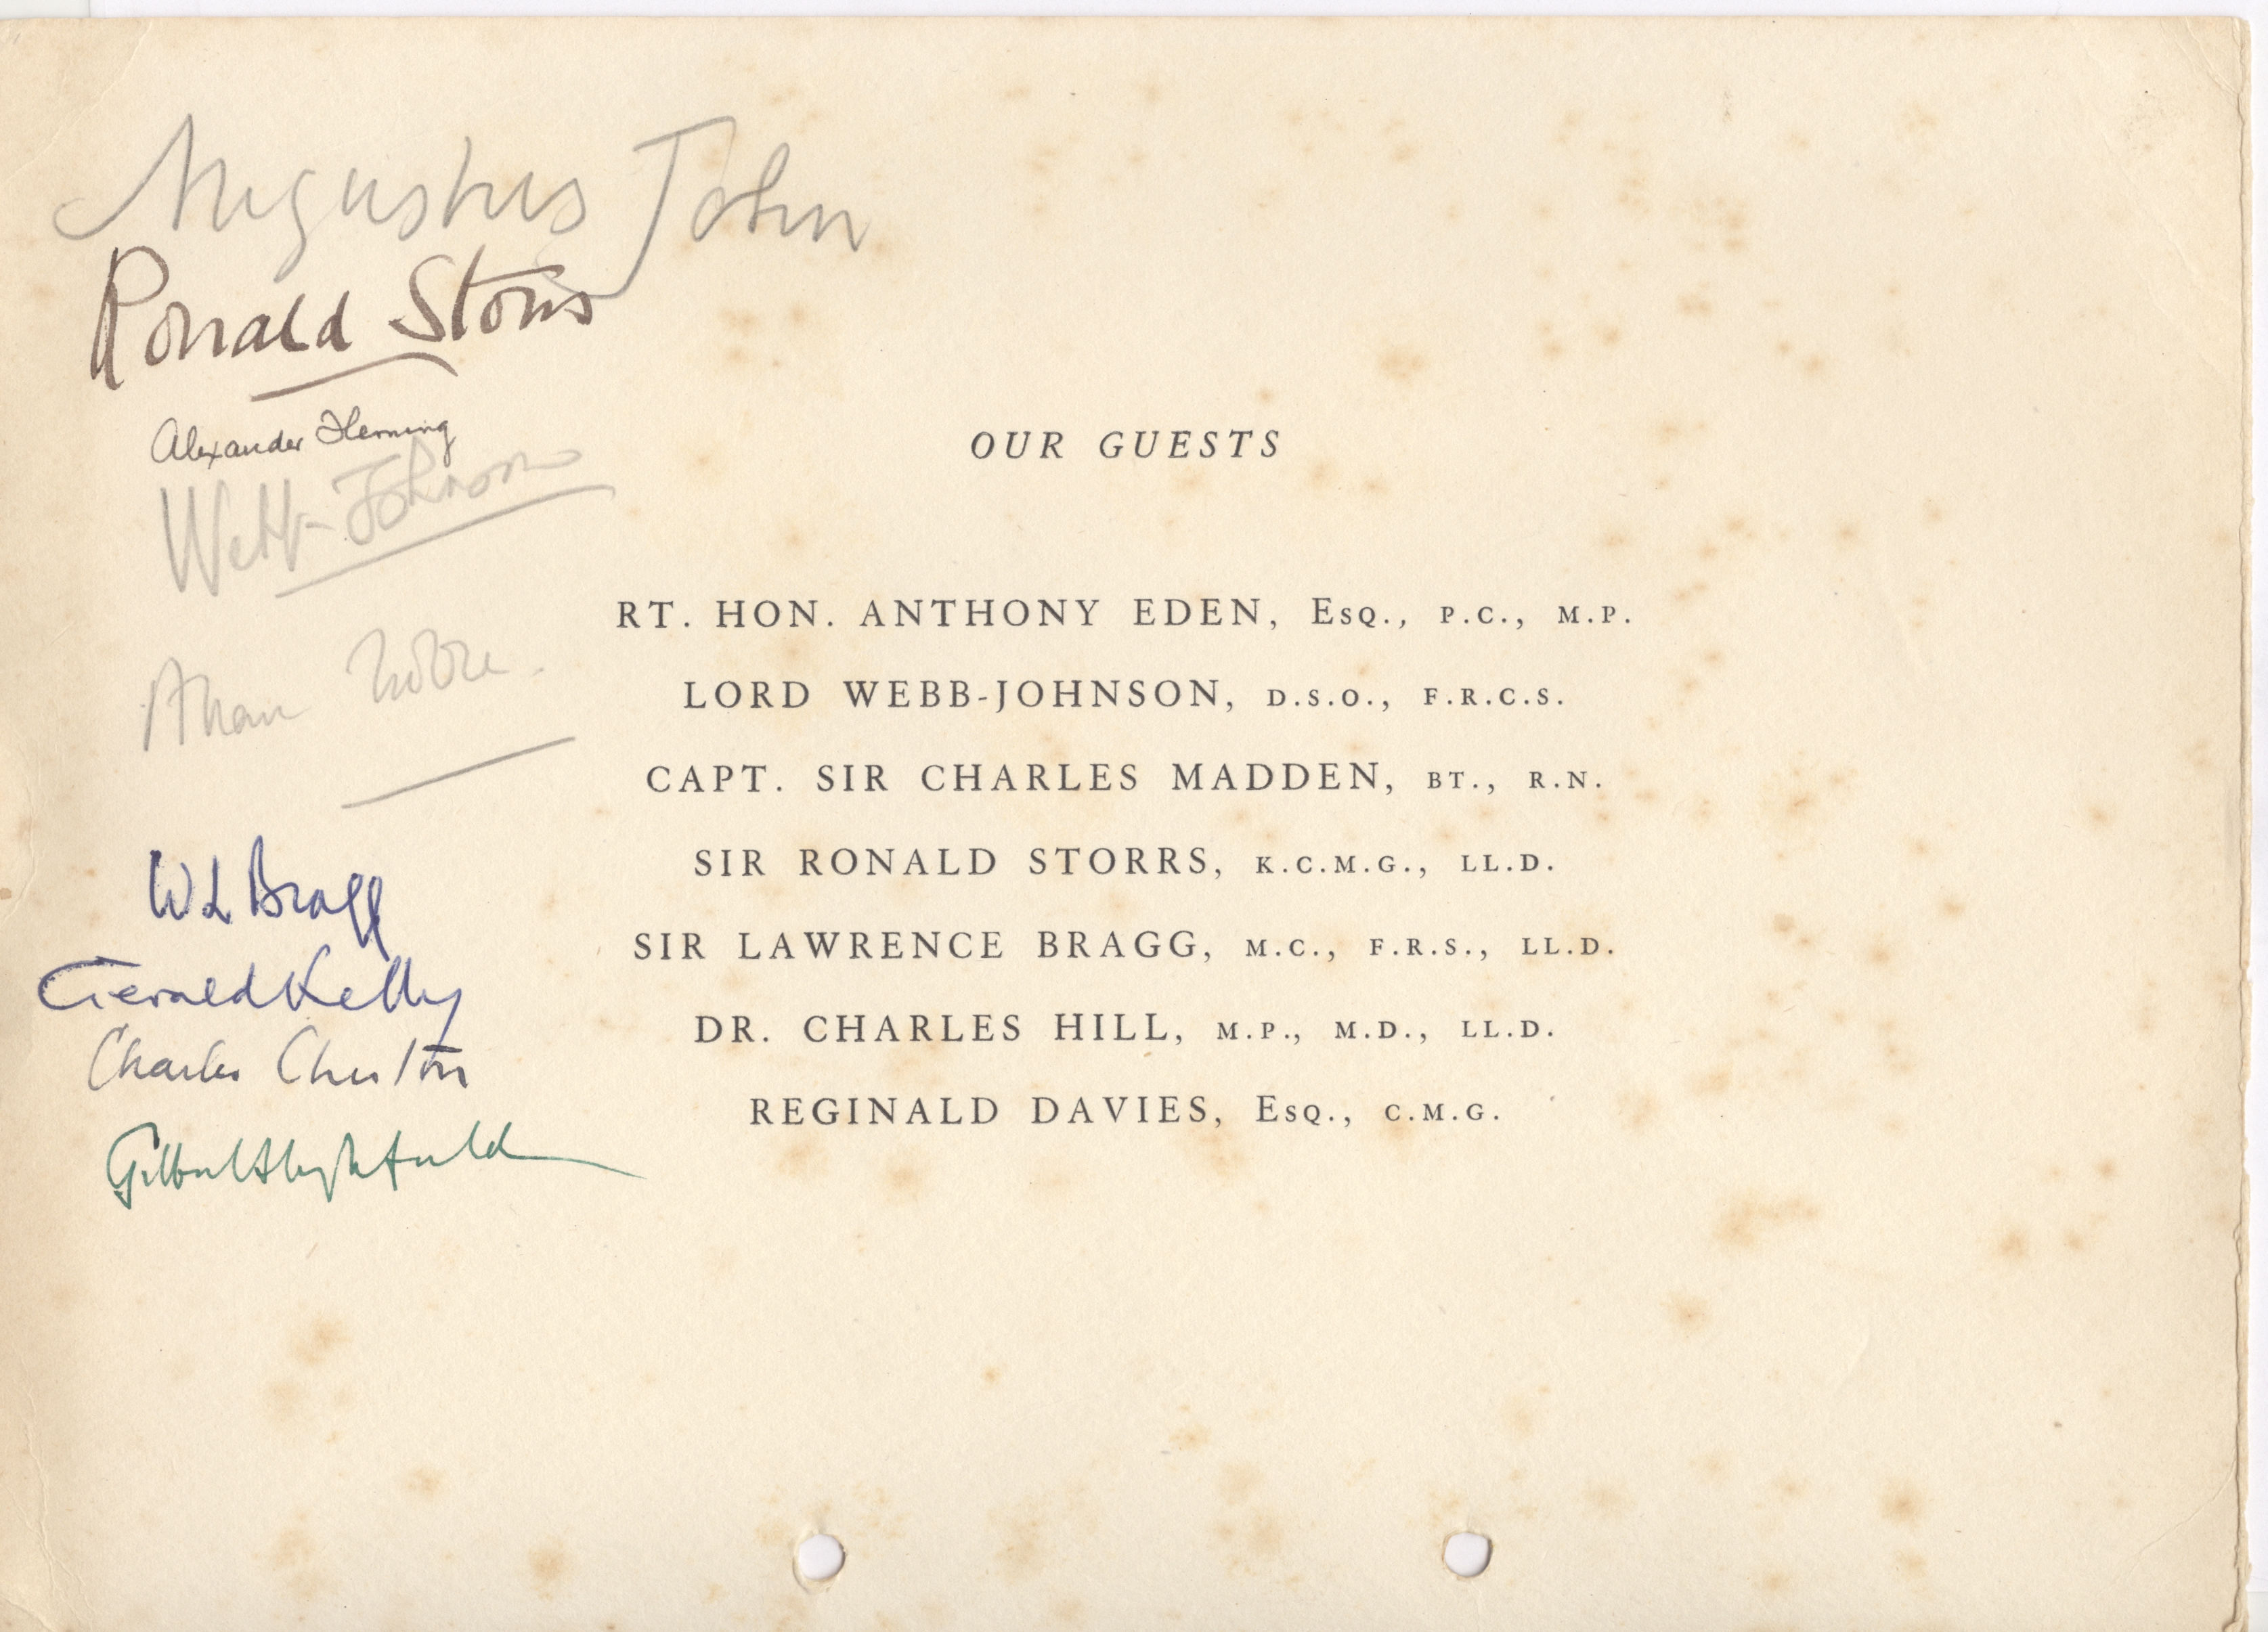 Augustus John
Ronald Storrs
Alexander Fleming
Webb-Johnson
W L Bragg
Gerald Kelly
Charles
OUR GUESTS
RT. HON. ANTHONY EDEN, Esq., P.C., M.P.
LORD WEBB-JOHNSON, D.S.O., F.R.C.S.
CAPT. SIR CHARLES MADDEN, BT., R.N.
SIR RONALD STORRS, K.C.M.G., LL.D.
SIR LAWRENCE BRAGG, M.C., F.R.S., LL.D.
DR. CHARLES HILL, M.P., M.D., LL.D.
REGINALD DAVIES, Esq., C.M.G.